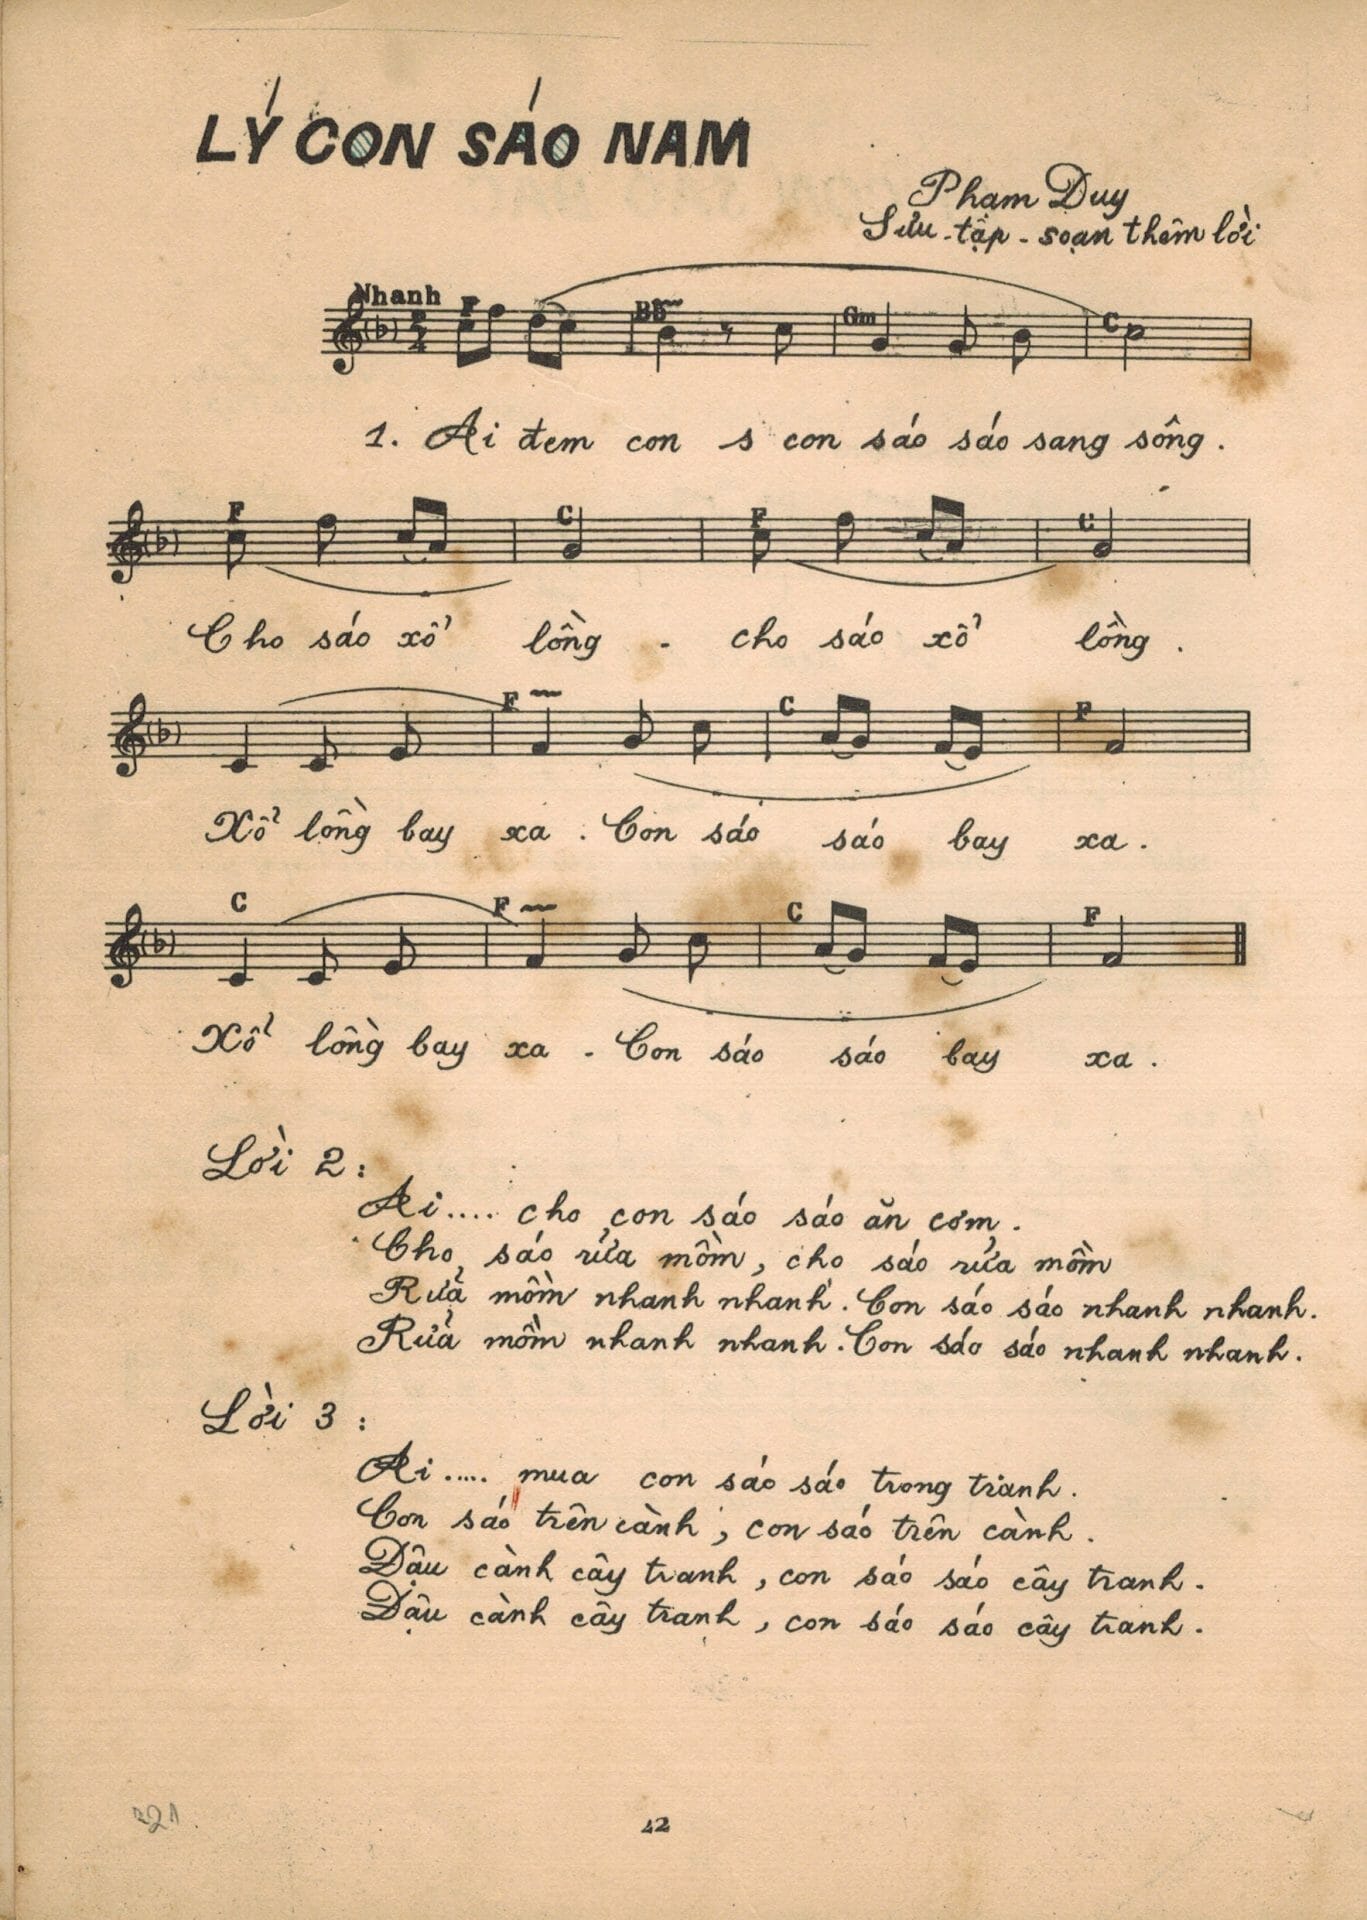 LÝ CON SÁO NAM
Phạm Duy
Sưu-tập-soạn thêm lời
Nhanh
F Bb Gm C
2
4
1. Ai đem con s con sáo sáo sang sông.
F C F C
Cho sáo xổ lồng - cho sáo xổ lồng.
F C F
Xổ lồng bay xa. Con sáo sáo bay xa.
C F C F
Xổ lồng bay xa - Con sáo sáo bay xa.
Lời 2:
Ai.... cho con sáo sáo ăn cơm.
Cho sáo rửa mồm, cho sáo rửa mồm
Rửa mồm nhanh nhanh. Con sáo sáo nhanh nhanh.
Rửa mồm nhanh nhanh. Con sáo sáo nhanh nhanh.
Lời 3:
Ai..... mua con sáo sáo trong tranh.
Con sáo trên cành, con sáo trên cành.
Đậu cành cây tranh, con sáo sáo cây tranh.
Đậu cành cây tranh, con sáo sáo cây tranh.
42